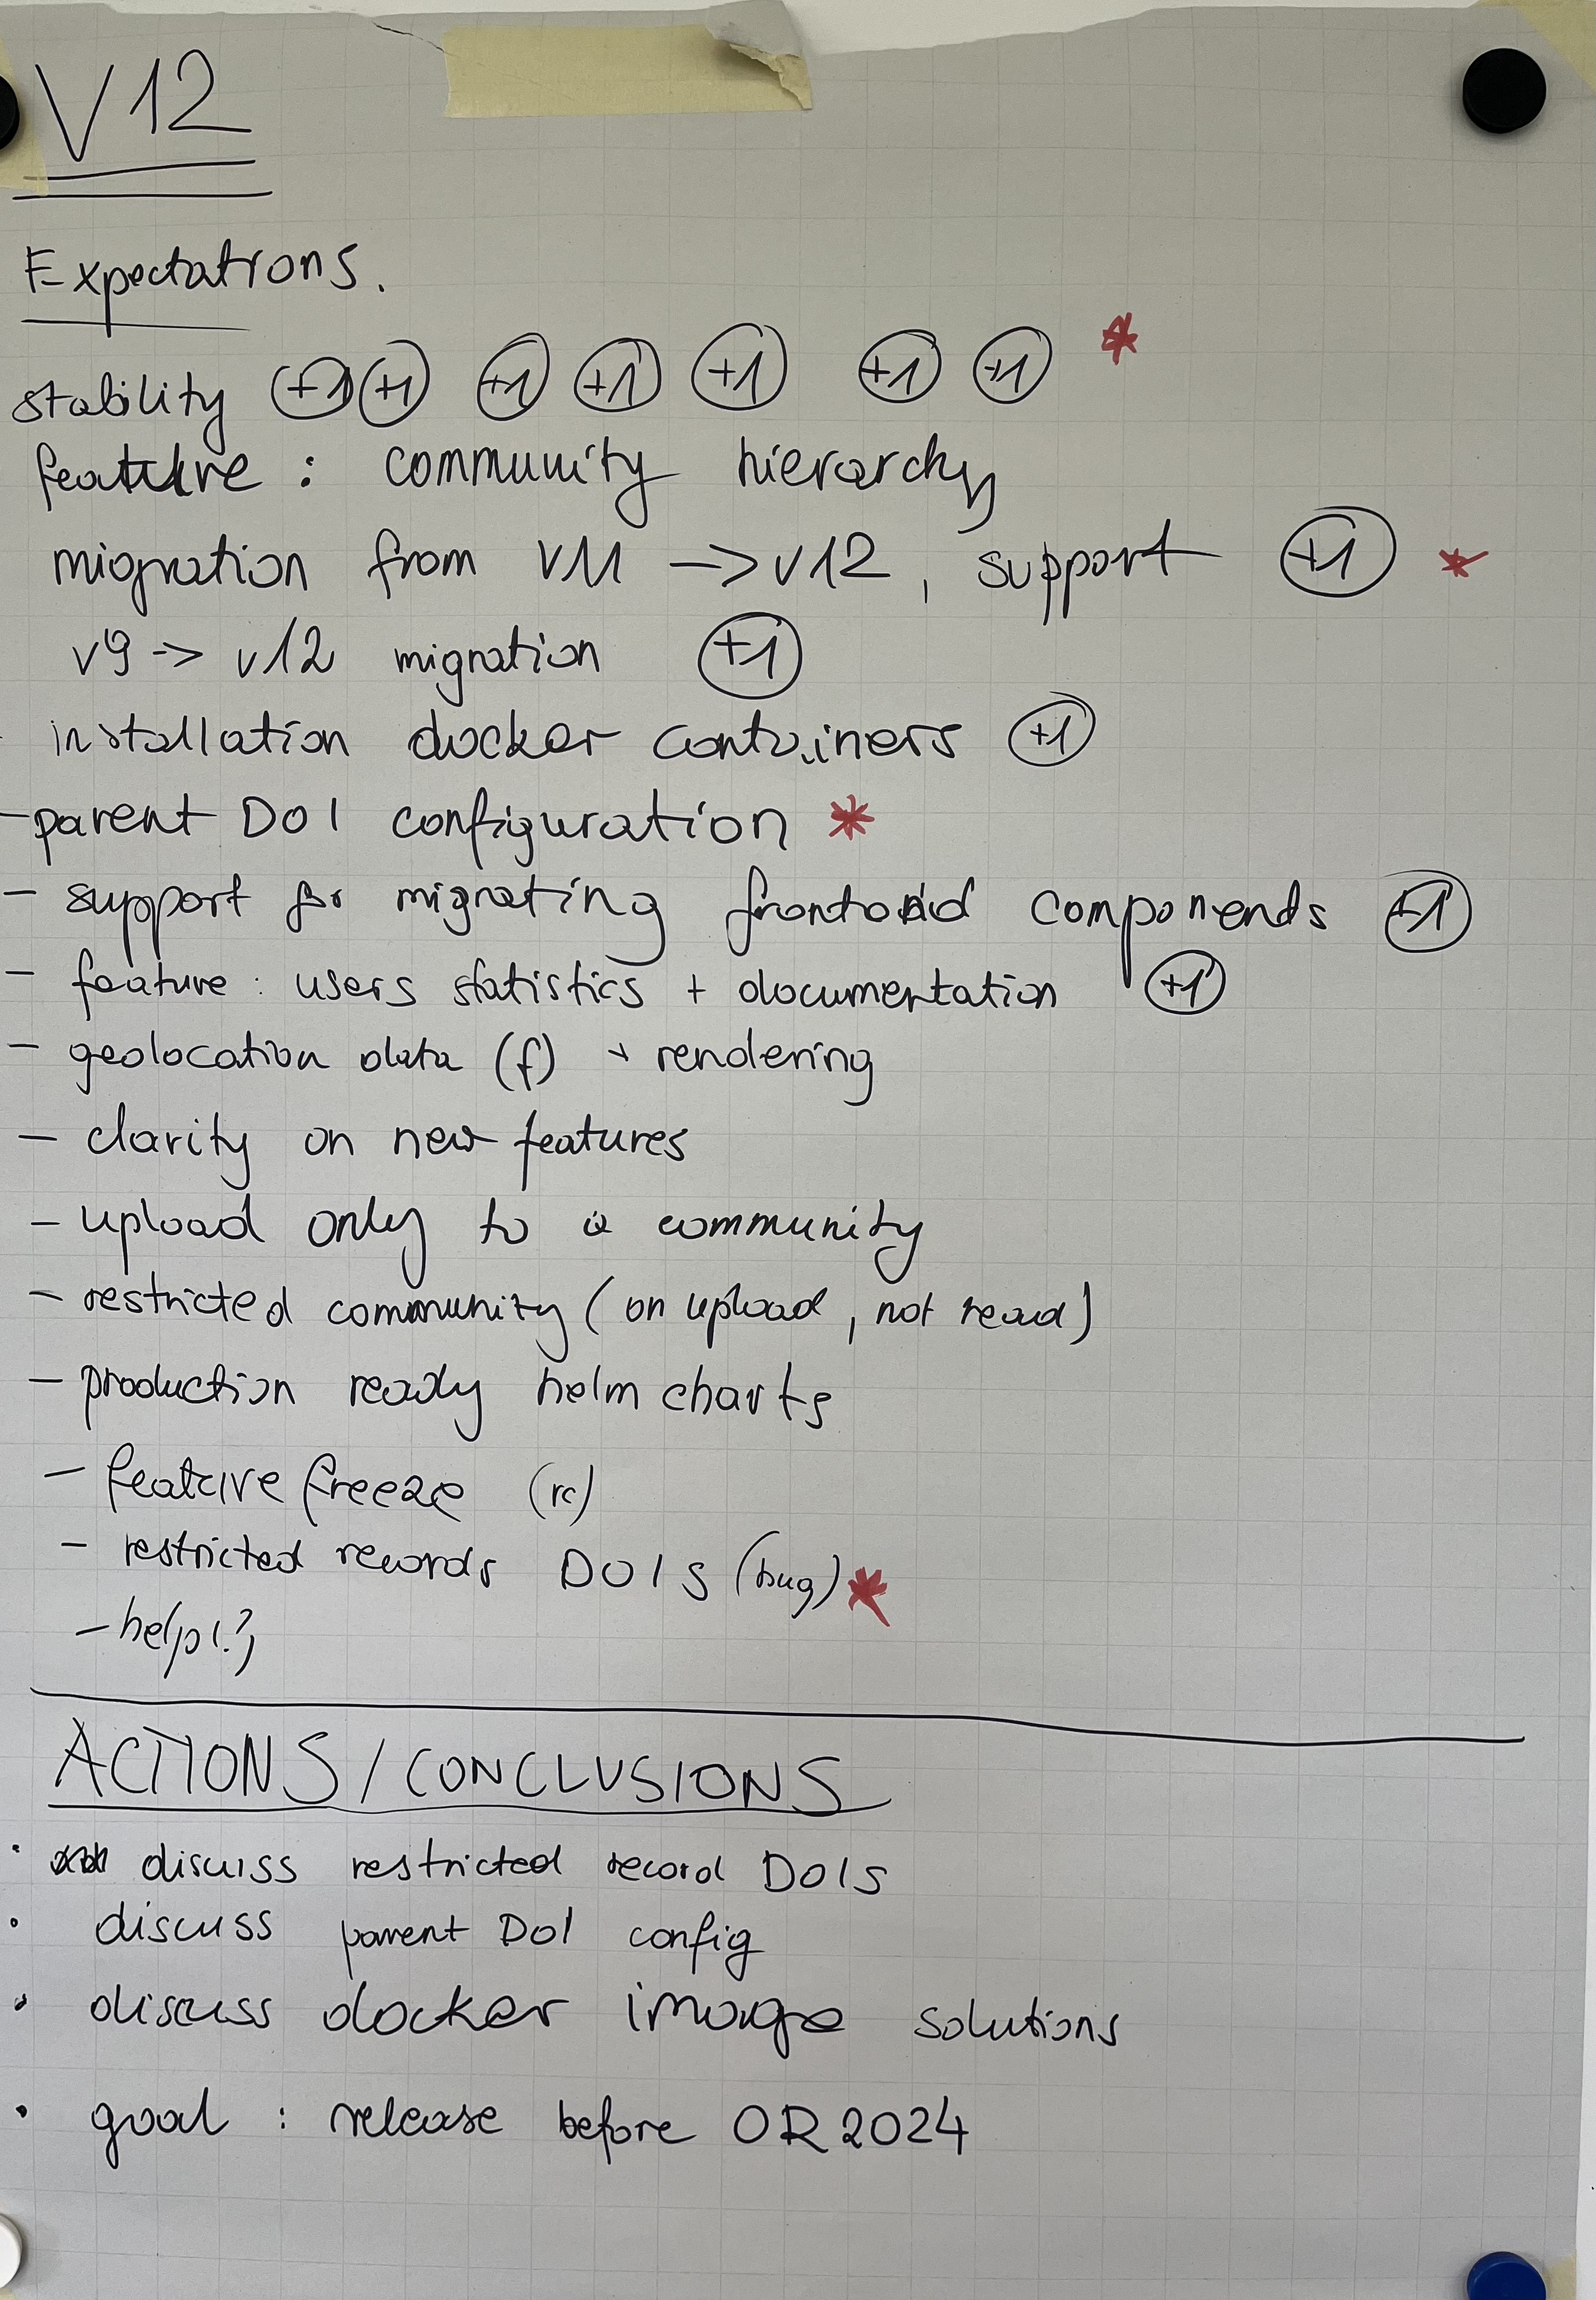 V12
Expectations.
stability +1 +1 +1 +1 +1 +1 +1 *
feature : community hierarchy
migration from v11 -> v12, support +1 *
v9 -> v12 migration +1
- installation docker containers +1
- parent DOI configuration *
- support for migrating frontend componends +1
- feature : users statistics + documentation +1
- geolocation data (f) + rendering
- clarity on new features
- upload only to a community
- restricted community (on upload, not read)
- production ready helm charts
- feature freeze (rc)
- restricted records DOIs (bug) *
- help!?
ACTIONS / CONCLUSIONS
• discuss restricted record DOIs
• discuss parent DOI config
• discuss docker image solutions
• goal : release before OR2024